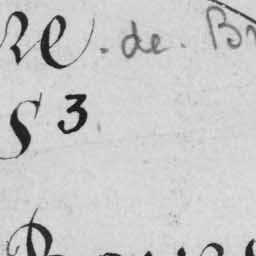 re. de. Br
S 3